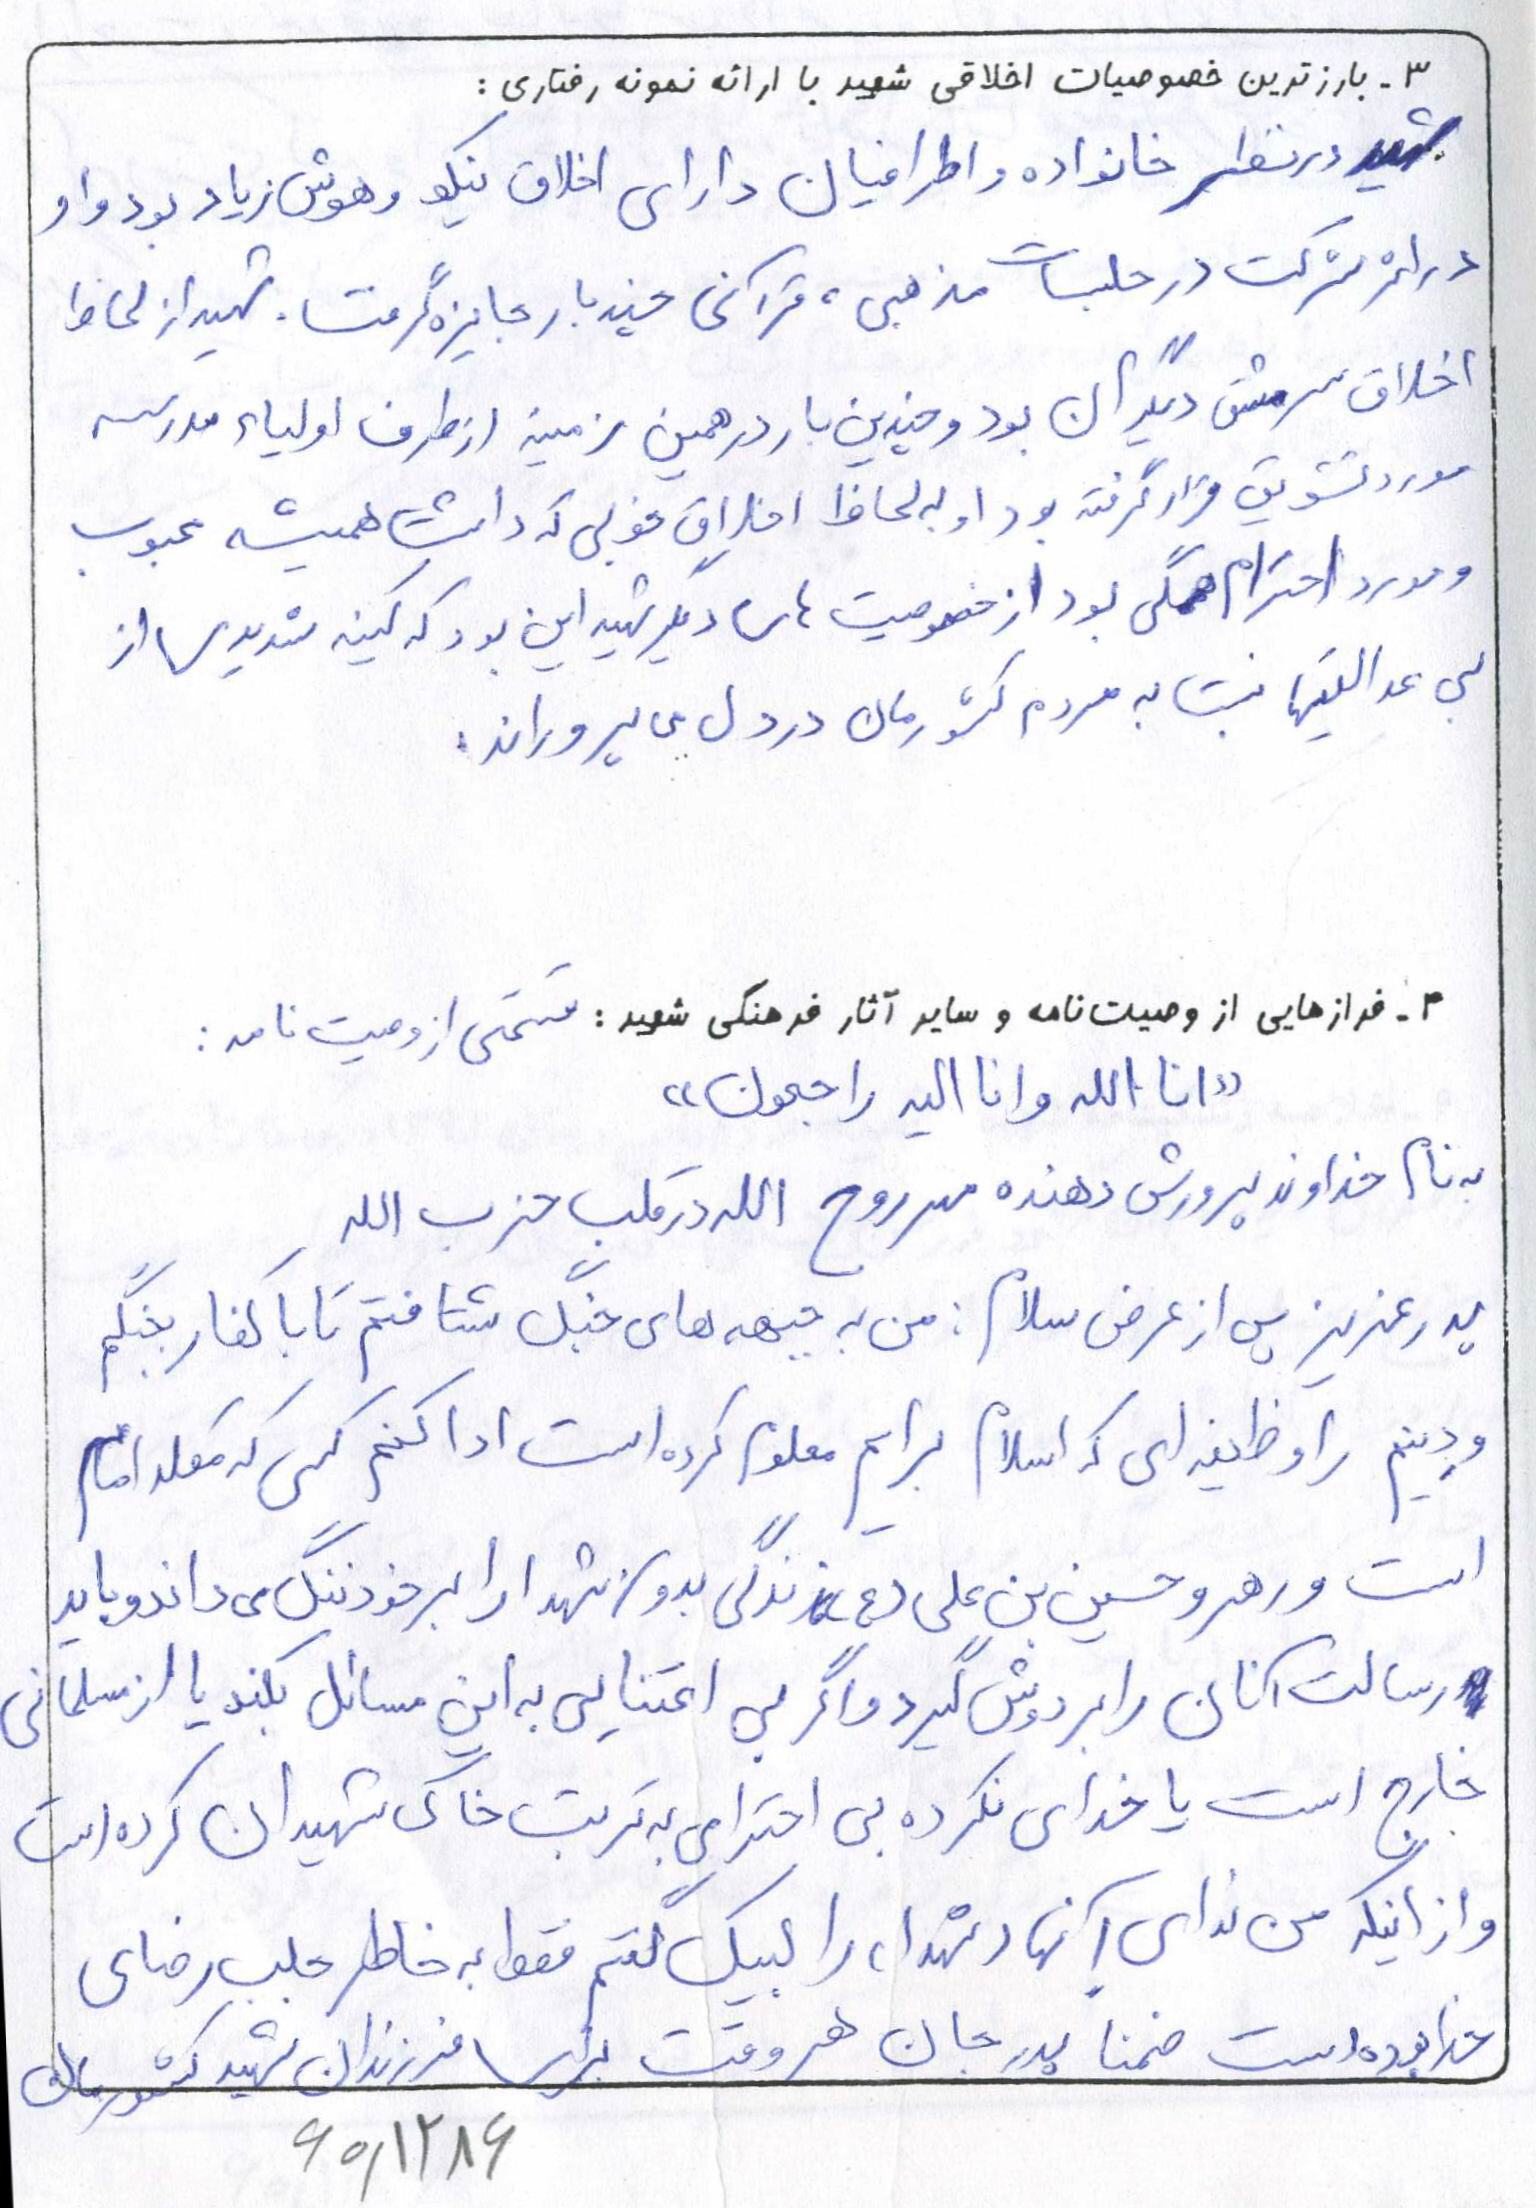 ۳ـ بارزترین خصوصیات اخلاقی شهید با ارائه نمونه رفتاری :
شهید در نظر خانواده و اطرافیان دارای اخلاق نیکو و هوش زیاد بود و او
در اثر شرکت در جلسات مذهبی ، قرآنی چند بار جایزه گرفت . شهید از لحاظ
اخلاق سرمشق دیگران بود و چندین بار در همین زمینه از طرف اولیاء مدرسه
مورد تشویق قرار گرفته بود او به لحاظ اخلاق خوبی که داشت همیشه محبوب
و مورد احترام همگی بود از خصوصیت های دیگر شهید این بود که کینه شدیدی از
بی عدالتیها نسبت به مردم کشورمان در دل می پروراند .
۴ـ فرازهایی از وصیت‌نامه و سایر آثار فرهنگی شهید : قسمتی از وصیت نامه :
«انا لله و انا الیه راجعون»
به نام خداوند پرورش دهنده مهر روح الله در قلب حزب الله
پدر عزیز پس از عرض سلام : من به جبهه های جنگ شتافتم تا با کفار بجنگم
و دینم را و ظیفه ای که اسلام برایم معلوم کرده است ادا کنم کسی که مقلد امام
است و رهرو حسین بن علی (ع) زندگی بدون شهدا را بر خود ننگ می داند و باید
رسالت آنان را بر دوش گیرد و اگر بی اعتنایی به این مسائل بکند یا از مسلمانی
خارج است یا خدای نکرده بی احترامی به تربت خاک شهیدان کرده است
و از اینکه من ندای آنها (شهدا) را لبیک گفتم فقط به خاطر جلب رضای
خدا بوده است ضمنا پدر جان هر وقت برای فرزندان شهید کشورمان
۶۰۱۲۸۶